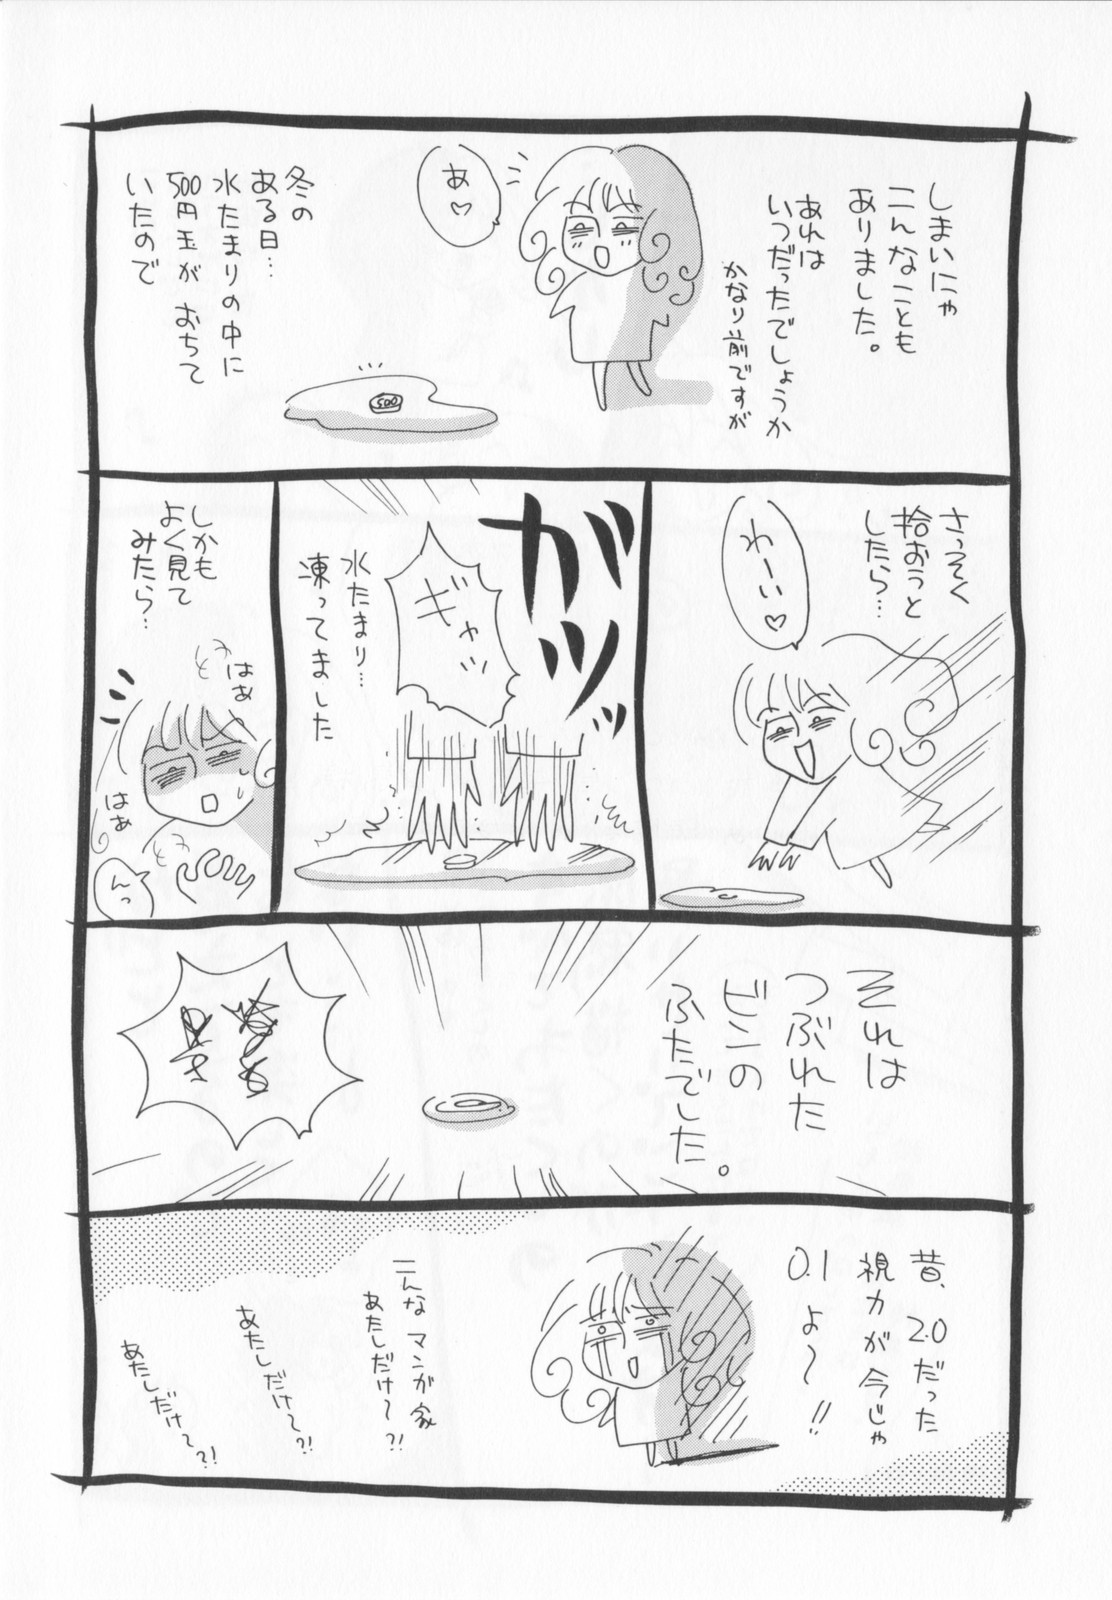 しまいにゃ
こんなことも
ありました。
あれは
いつだったでしょうか
かなり前ですが
あ♡
冬の
ある日…
水たまりの中に
500円玉が おちて
いたので
500
さっそく
拾おうと
したら…
わーい♡
ガツッ
ギャッ
水たまり…
凍ってました
しかも
よく見て
みたら…
どき
はぁ
はぁ
んっ
それは
つぶれた
ビンの
ふたでした。
昔、2.0だった
視力が今じゃ
0.1よ～!!
こんなマンガ家
あたしだけ～?!
あたしだけ～?!
あたしだけ～?!